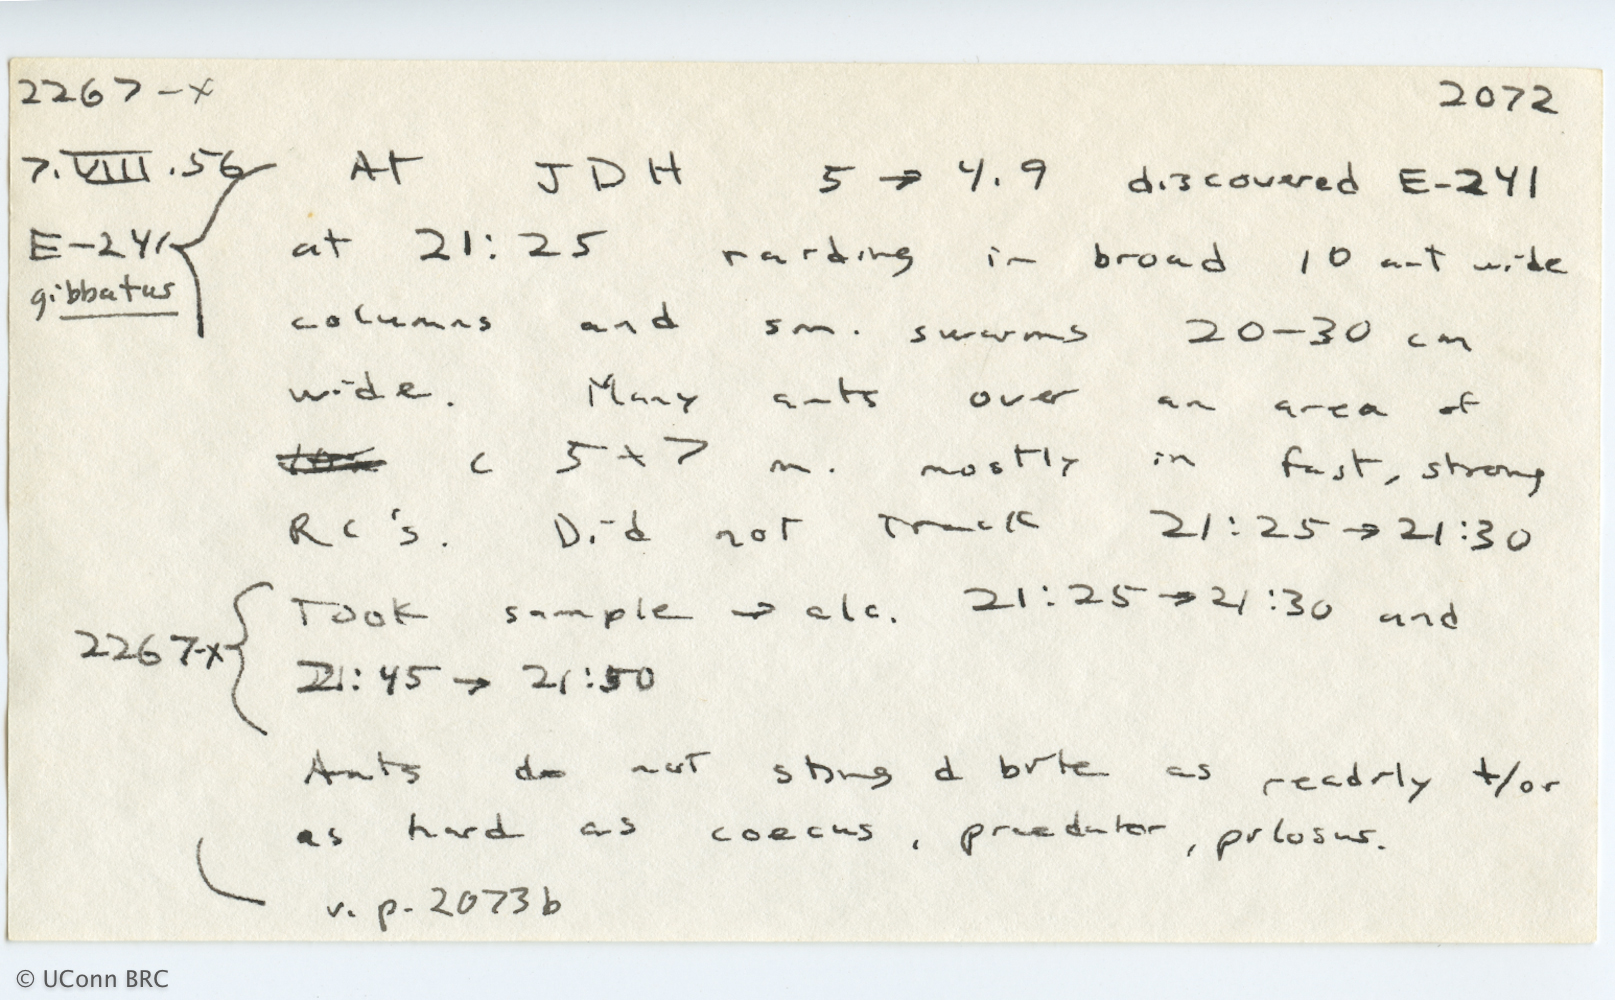 2267-x 2072
7.VIII.56 At JDH 5 → 4.9 discovered E-241
E-241 at 21:25 raiding in broad 10 ant wide
gibbatus
columns and sm. swarms 20-30 cm
wide. Many ants over an area of
c 5 x 7 m. mostly in fast, strong
RC's. Did not track 21:25 → 21:30
Took sample → alc. 21:25 → 21:30 and
2267-x
21:45 → 21:50
Ants do not sting & bite as readily +/or
as hard as coecus, praedator, pilosus.
v. p. 2073b
© UConn BRC